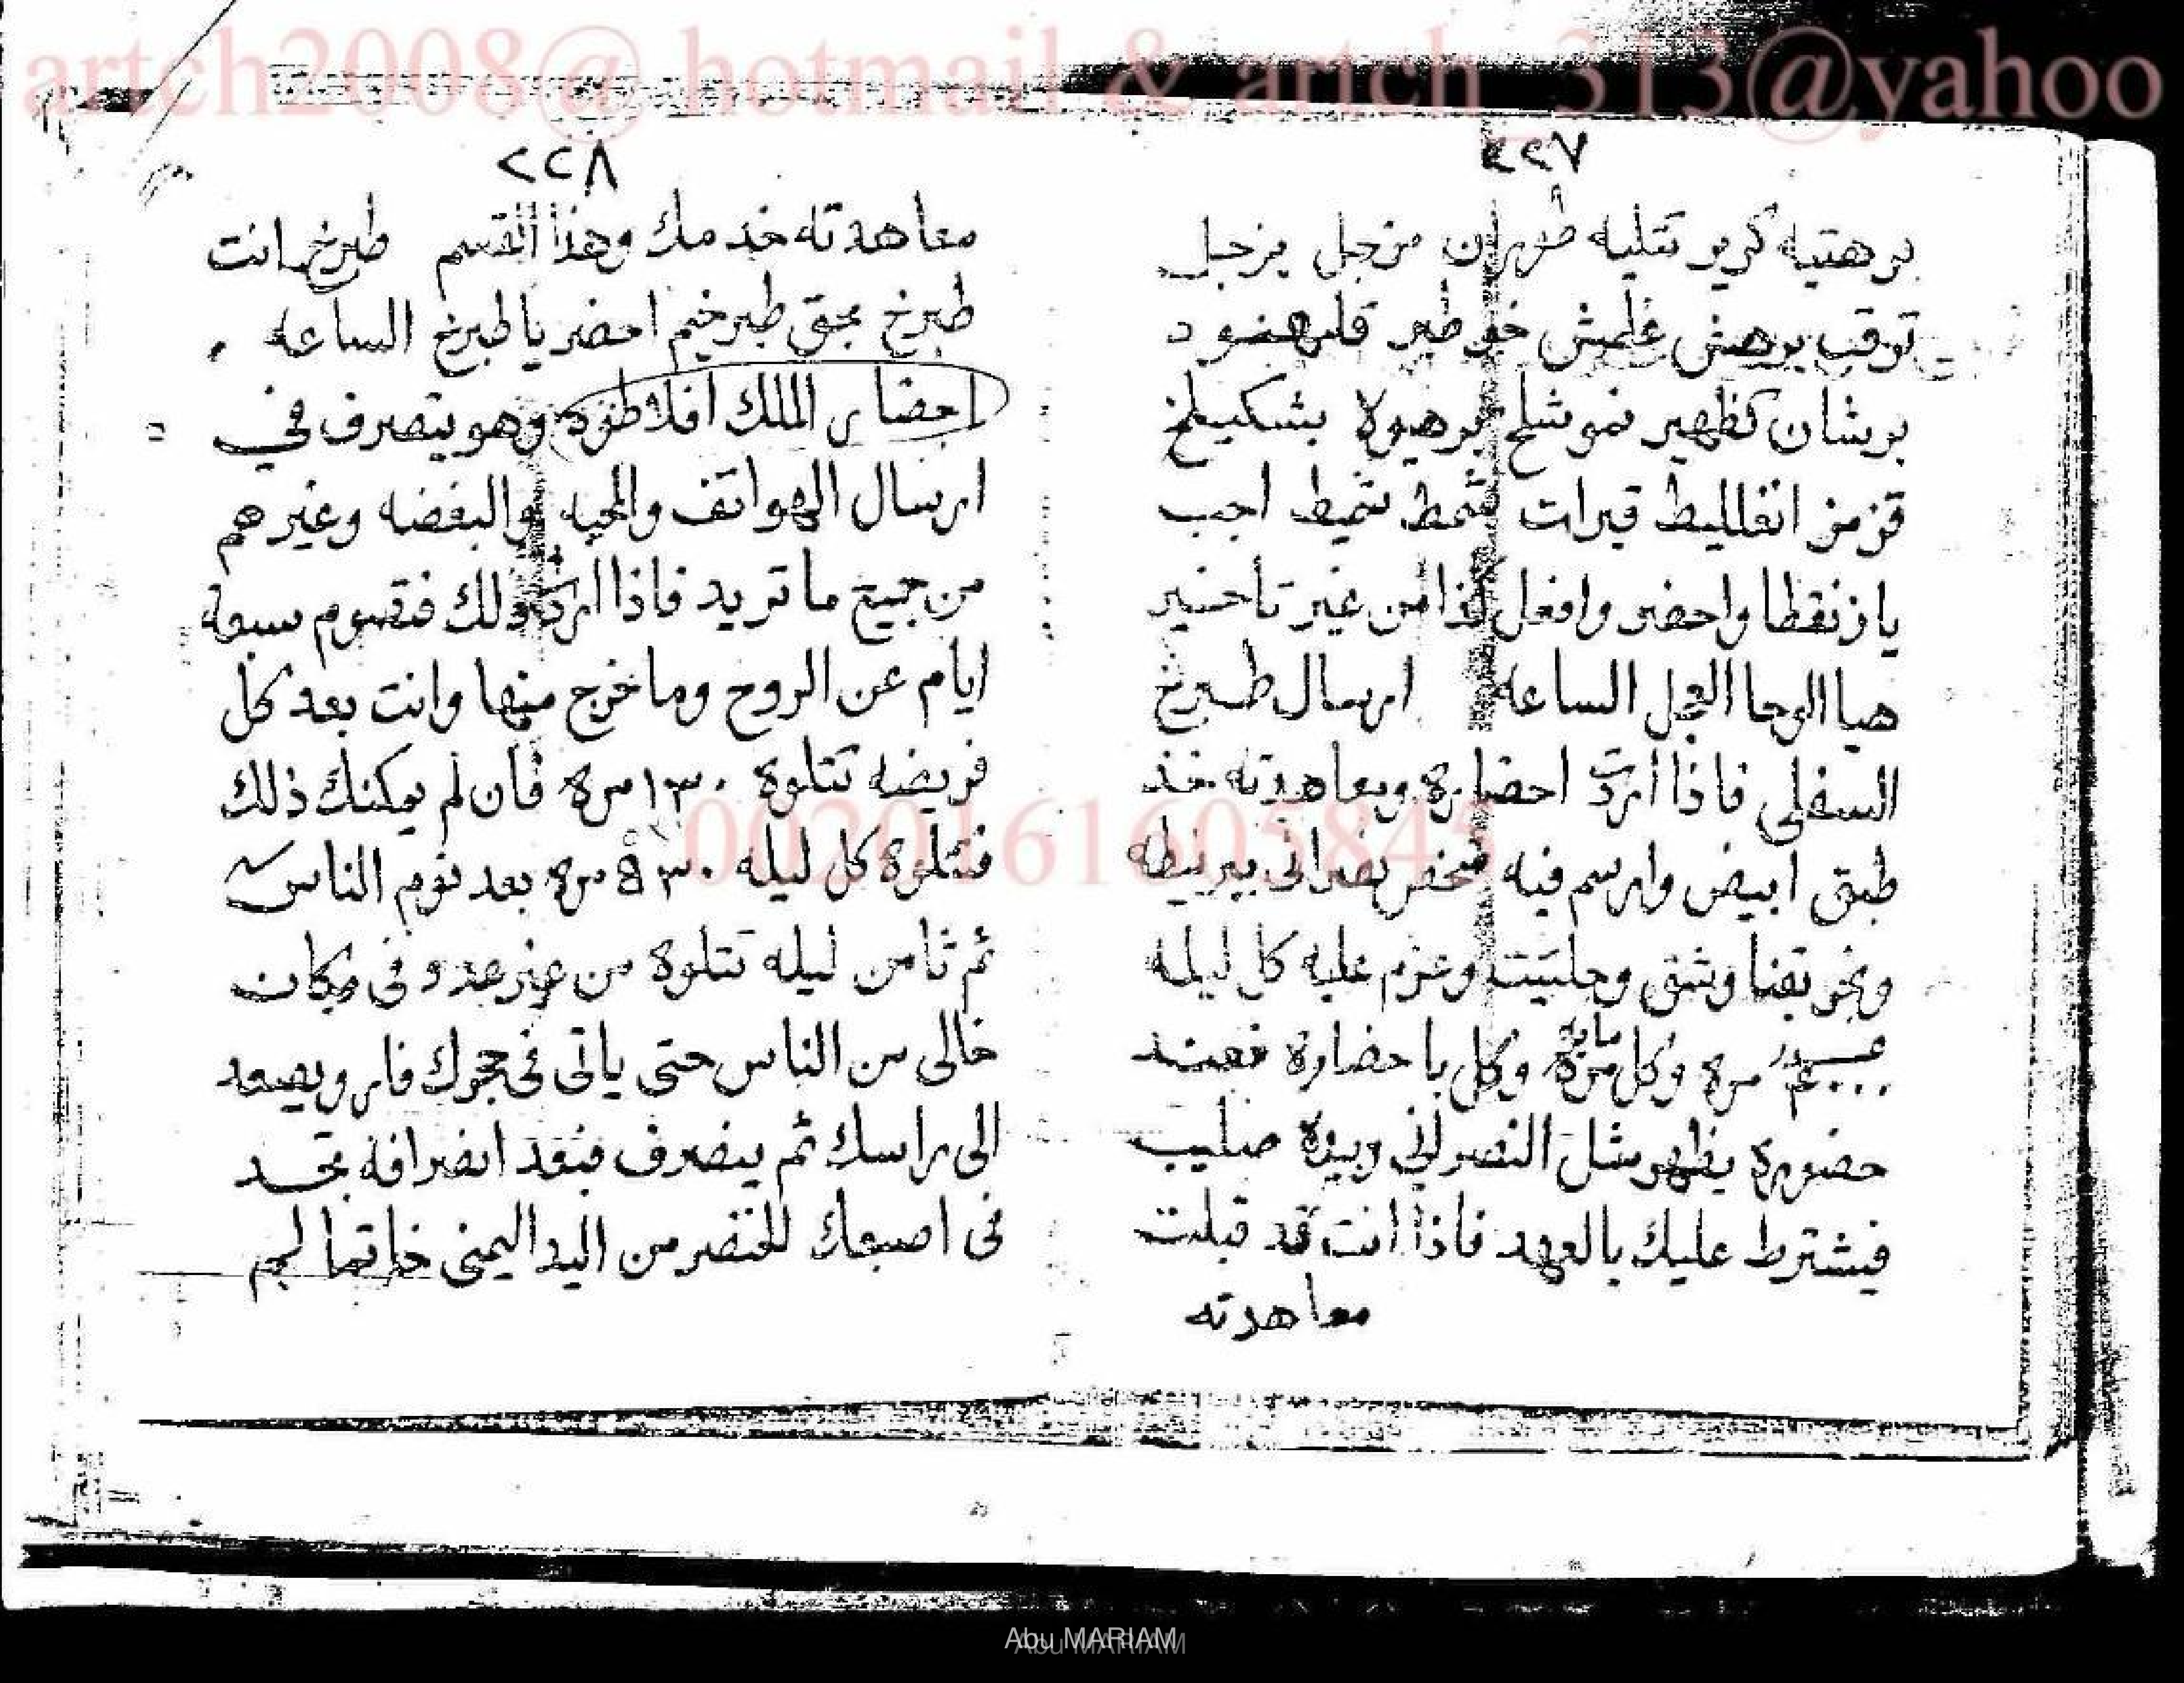 artch2008@ hotmail & artch_313@yahoo
٢٢٧
برهتيه كرير تتليه طوران مزجل بزجل
ترقب برهش غلمش خوطير قلنهود
برشان كظهير نموشلخ برهيولا بشكيلخ
قزمز انغلليط قبرات شمط شميط اجب
يا زنقطا واحضر وافعل كذا من غير تاخير
هيا الوحا العجل الساعه ارسال طبرخ
السفلي فاذا اردت احضاره ومعاهدته خذ
طبق ابيض وارسم فيه شخص نصراني ببرنيطه
وبخر وحلتيت وعزم عليه كل ليله
مره وكل مره مايه وكل باحضاره فعند
حضوره يظهر مثل النصراني وبيده صليب
فيشترط عليك بالعهد فاذا انت قد قبلت
معاهدته
٢٢٨
معاهدته خدمك وهذا القسم طبرخ انت
طبرخ بحق طبرخيم احضر يا طبرخ الساعه
احضار الملك افلاطوه وهو يتصرف في
ارسال الهواتف والمحبه والبغضه وغيرهم
من جميع ما تريد فاذا اردت ذلك فتصوم سبعة
ايام عن الروح وما خرج منها وانت بعد كل
فريضه تتلوه ١٣٠ مره فان لم يمكنك ذلك
فتتلوه كل ليله مره بعد نوم الناس
ثم ثامن ليله تتلوه من غير عدد وفي مكان
خالى من الناس حتى ياتى فى حجرك فار ويصعد
الى راسك ثم ينصرف فبعد انصرافه تجد
فى اصبعك الخنصر من اليد اليمنى خاتما
0020161605845
Abu MARIAM